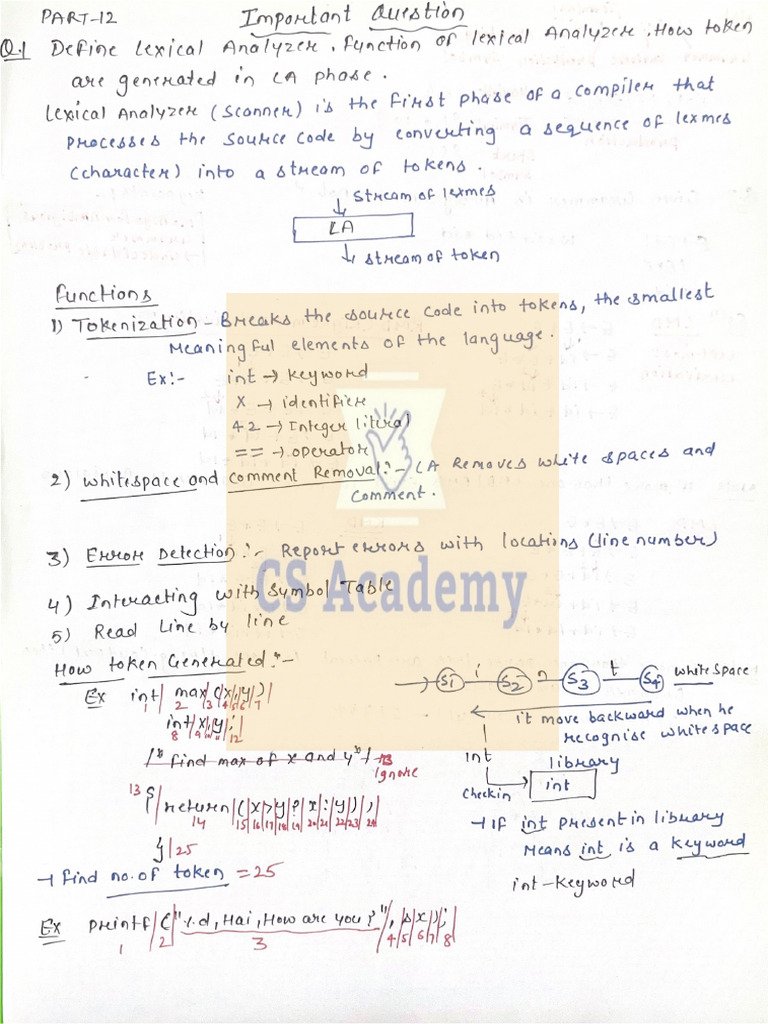 PART-12 Important Question
Q.1 Define Lexical Analyzer. Function of lexical Analyzer. How token
are generated in LA phase.
Lexical Analyzer (Scanner) is the first phase of a compiler that
processes the source code by converting a sequence of lexmes
(character) into a stream of tokens.
stream of lexmes
LA
stream of token
Functions
1) Tokenization - Breaks the source code into tokens, the smallest
Meaningful elements of the language.
Ex:- int → keyword
x → identifier
42 → Integer literal
== → operator
2) whitespace and comment Removal:- LA Removes white spaces and
comment.
3) Error Detection:- Report errors with locations (line number)
CS Academy
4) Interacting with Symbol Table
5) Read Line by line
How token Generated:-
Ex int| max|(|x|,|y|)|
1 2 3 4 5 6 7
int|x|,|y|;|
8 9 10 11 12
/* find max of x and y */ →
ignore
13 {|return|(|x|>|y|?|x|:|y|)|;|
14 15 16 17 18 19 20 21 22 23 24
}|25
→ find no. of token = 25
→ S1 i S2 n S3 t S4 whitespace
it move backward when he
recognise whitespace
int library
checkin int
→ If int present in library
Means int is a keyword
int - keyword
Ex printf|(|"%d, Hai, How are you?"|,|&|x|)|;|
1 2 3 4 5 6 7 8